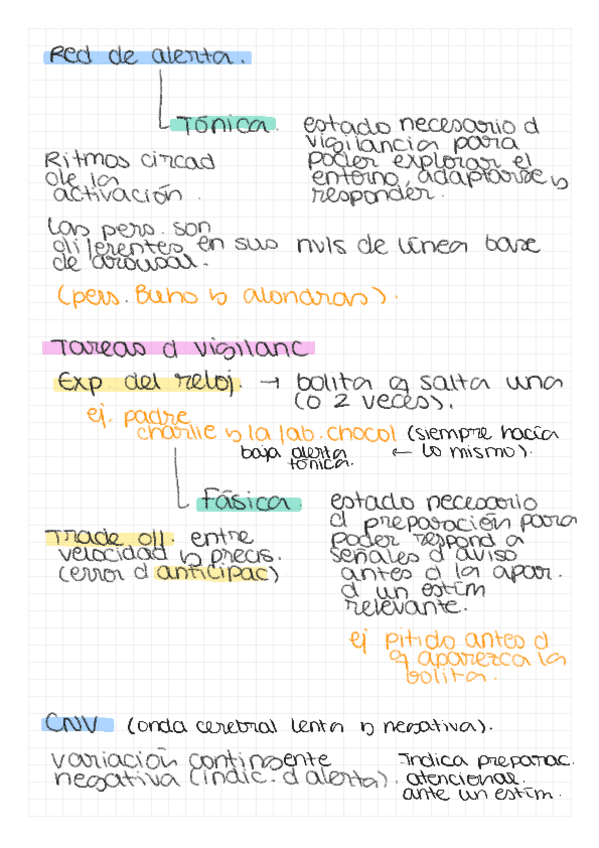 Red de alerta.
Tónica.
estado necesario d
vigilancia para
poder explorar el
entorno, adaptarse y
responder.
Ritmos circad
de la
activación.
Las pers. son
diferentes en sus nvls de línea base
de arousal.
(pers. Buho y alondras).
Tareas d vigilanc
Exp del reloj. → bolita q salta una
(o 2 veces).
ej. padre
charlie y la fab. chocol (siempre hacía
baja alerta ← lo mismo).
tónica.
Fásica.
estado necesario
d preparación para
poder respond a
señales d aviso
antes d la apar.
d un estím
relevante.
Trade off. entre
velocidad y precis.
(error d anticipac)
ej pitido antes d
q aparezca la
bolita.
CNV (onda cerebral lenta y negativa).
variación contingente
negativa (indic. d alerta).
Indica preparac.
atencional.
ante un estím.